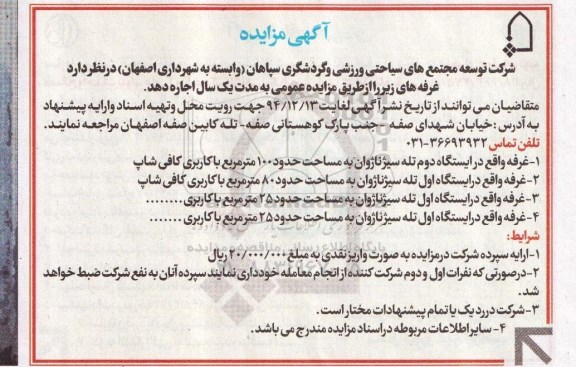 آگهی مزایده
شرکت توسعه مجتمع های سیاحتی ورزشی وگردشگری سپاهان (وابسته به شهرداری اصفهان) درنظر دارد
غرفه های زیر را از طریق مزایده عمومی به مدت یک سال اجاره دهد.
متقاضیان می توانند از تاریخ نشر آگهی لغایت ۹۴/۱۲/۱۳ جهت رویت محل وتهیه اسناد وارایه پیشنهاد
به آدرس :خیابان شهدای صفه - جنب پارک کوهستانی صفه- تله کابین صفه اصفهان مراجعه نمایند.
تلفن تماس ۳۶۶۹۳۹۳۲-۰۳۱
۱-غرفه واقع در ایستگاه دوم تله سیژ ناژوان به مساحت حدود ۱۰۰ مترمربع با کاربری کافی شاپ
۲-غرفه واقع درایستگاه اول تله سیژ ناژوان به مساحت حدود ۸۰ مترمربع با کاربری کافی شاپ
۳-غرفه واقع درایستگاه اول تله سیژ ناژوان به مساحت حدود ۲۵ مترمربع با کاربری ........
۴-غرفه واقع درایستگاه اول تله سیژ ناژوان به مساحت حدود ۲۵ مترمربع با کاربری ........
شرایط:
۱-ارایه سپرده شرکت درمزایده به صورت واریز نقدی به مبلغ ۲۰/۰۰۰/۰۰۰ ریال
۲-درصورتی که نفرات اول و دوم شرکت کننده از انجام معامله خودداری نمایند سپرده آنان به نفع شرکت ضبط خواهد
شد.
۳-شرکت دررد یک یا تمام پیشنهادات مختار است.
۴- سایر اطلاعات مربوطه دراسناد مزایده مندرج می باشد.